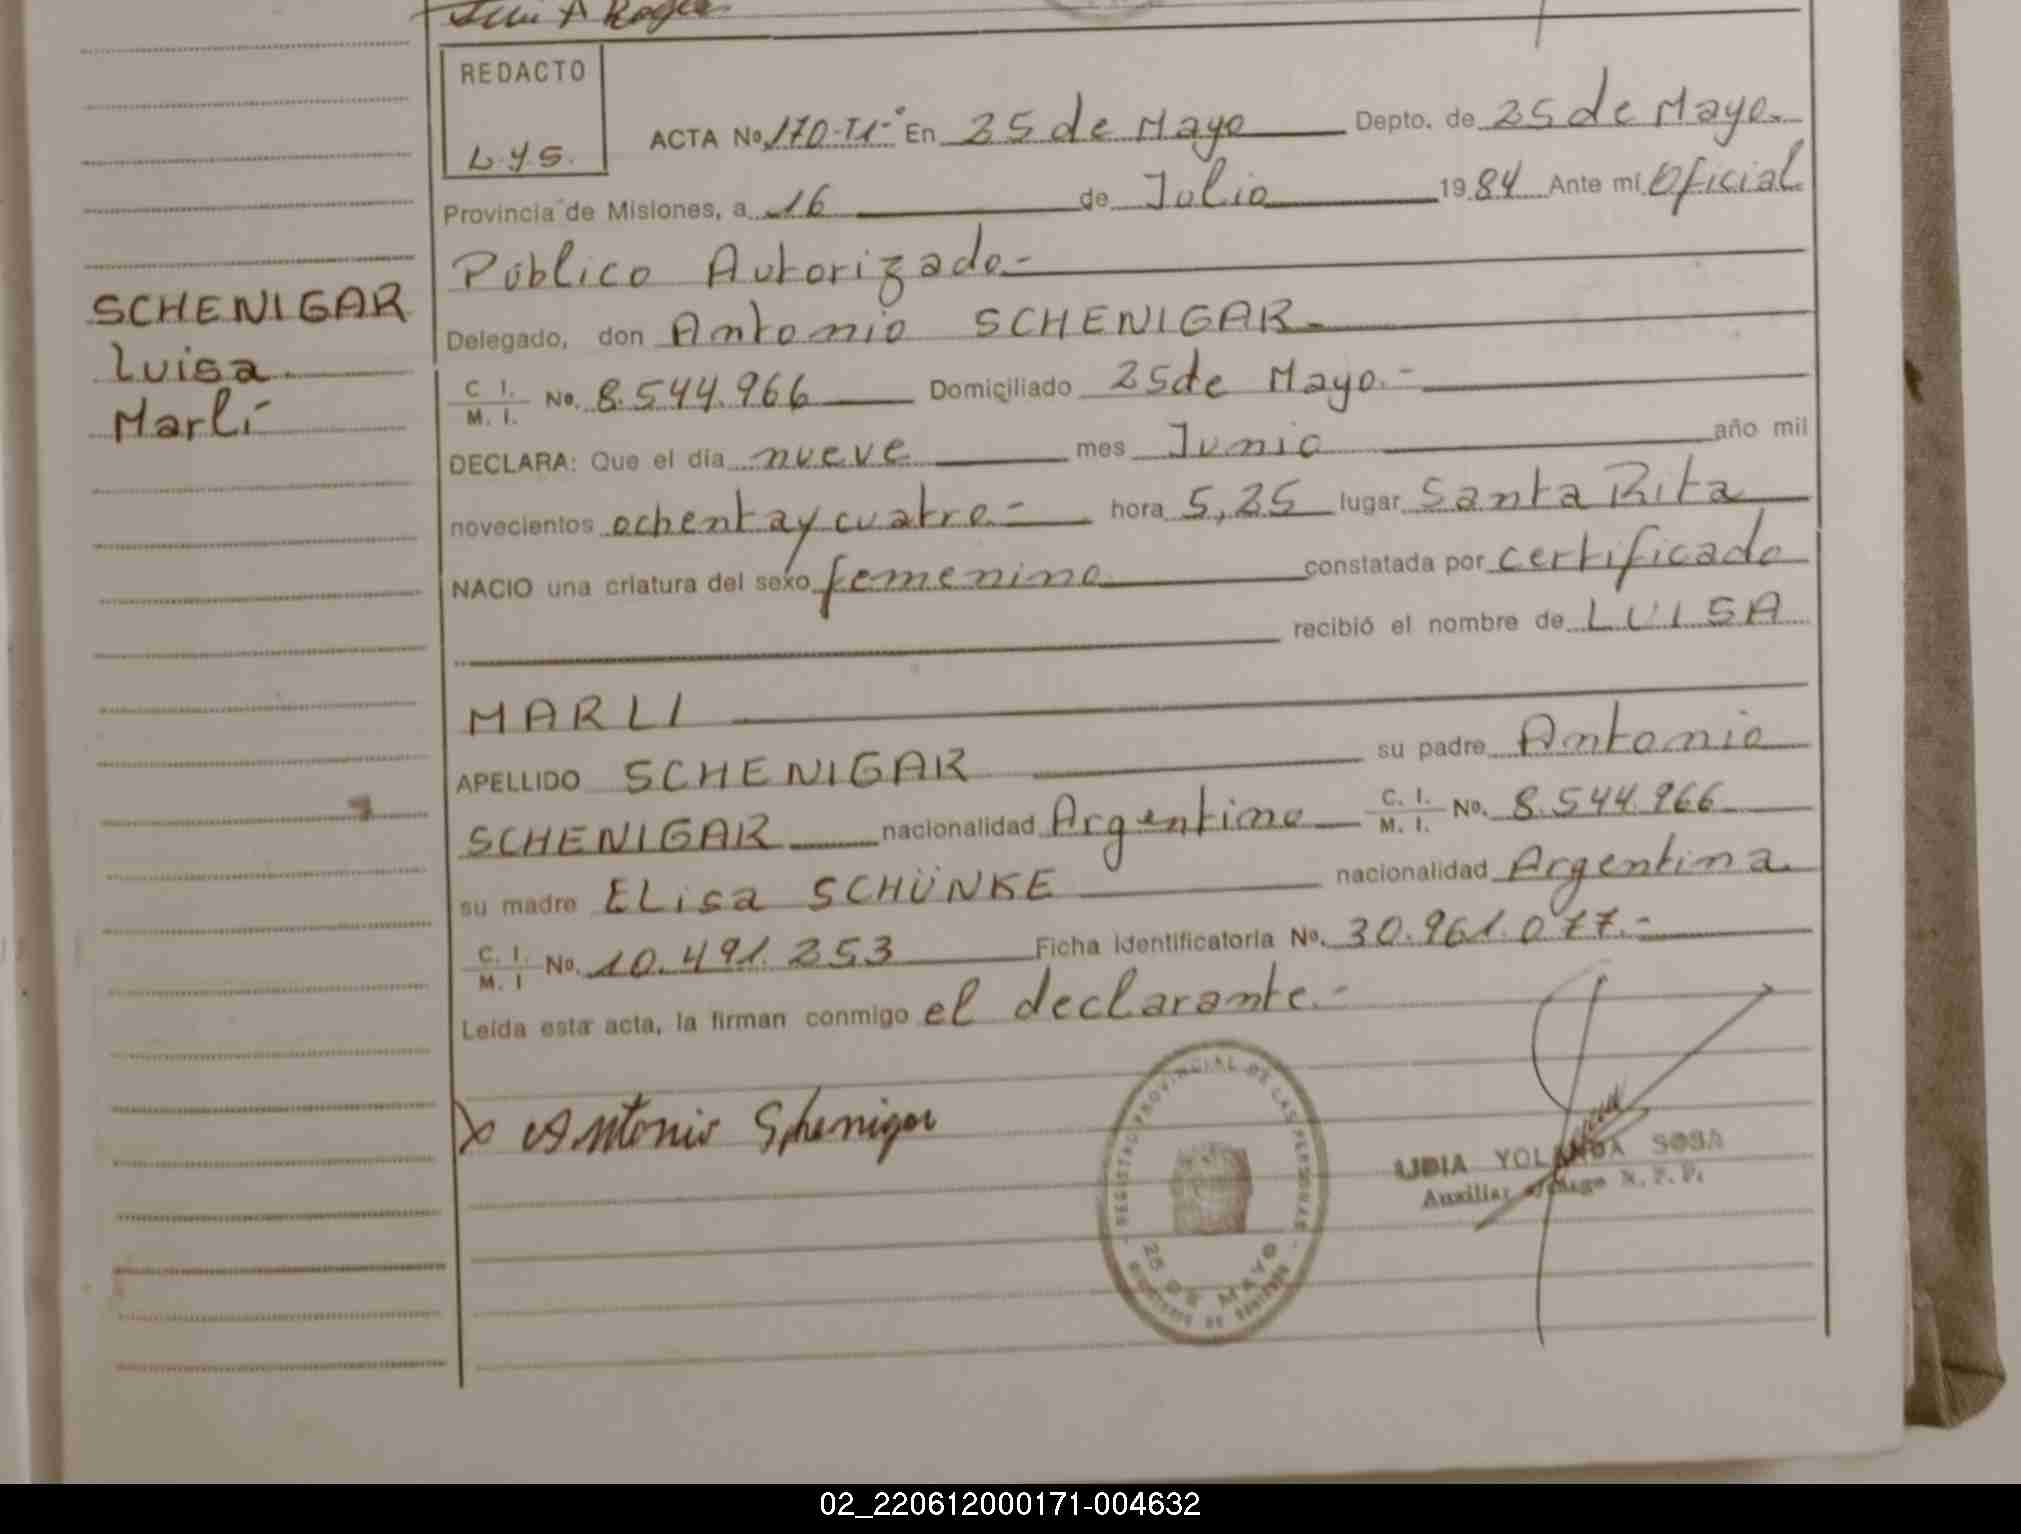 REDACTO
L.y.S.
ACTA No. 170-TI-° En 25 de Mayo Depto. de 25 de Mayo.
Provincia de Misiones, a 16 de Julio 1984 Ante mí Oficial
Público Autorizado.-
Delegado, don Antonio SCHENIGAR.
C. I.
M. I. No. 8.544.966 Domiciliado 25 de Mayo.-
DECLARA: Que el día nueve mes Junio año mil
novecientos ochenta y cuatro.- hora 5,25 lugar Santa Rita
NACIO una criatura del sexo femenino constatada por certificado
recibió el nombre de LUISA
MARLI
APELLIDO SCHENIGAR su padre Antonio
SCHENIGAR nacionalidad Argentino C. I. M. I. No. 8.544.966
su madre ELisa SCHÜNKE nacionalidad Argentina
C. I.
M. I No. 10.491.253 Ficha identificatoria No. 30.961.077.-
Leída esta acta, la firman conmigo el declarante.-
SCHENIGAR
Luisa
Marlí
Antonio Schenigar
REGISTRO PROVINCIAL DE LAS PERSONAS
25 DE MAYO
YOLANDA SOSA
Auxiliar
02_220612000171-004632